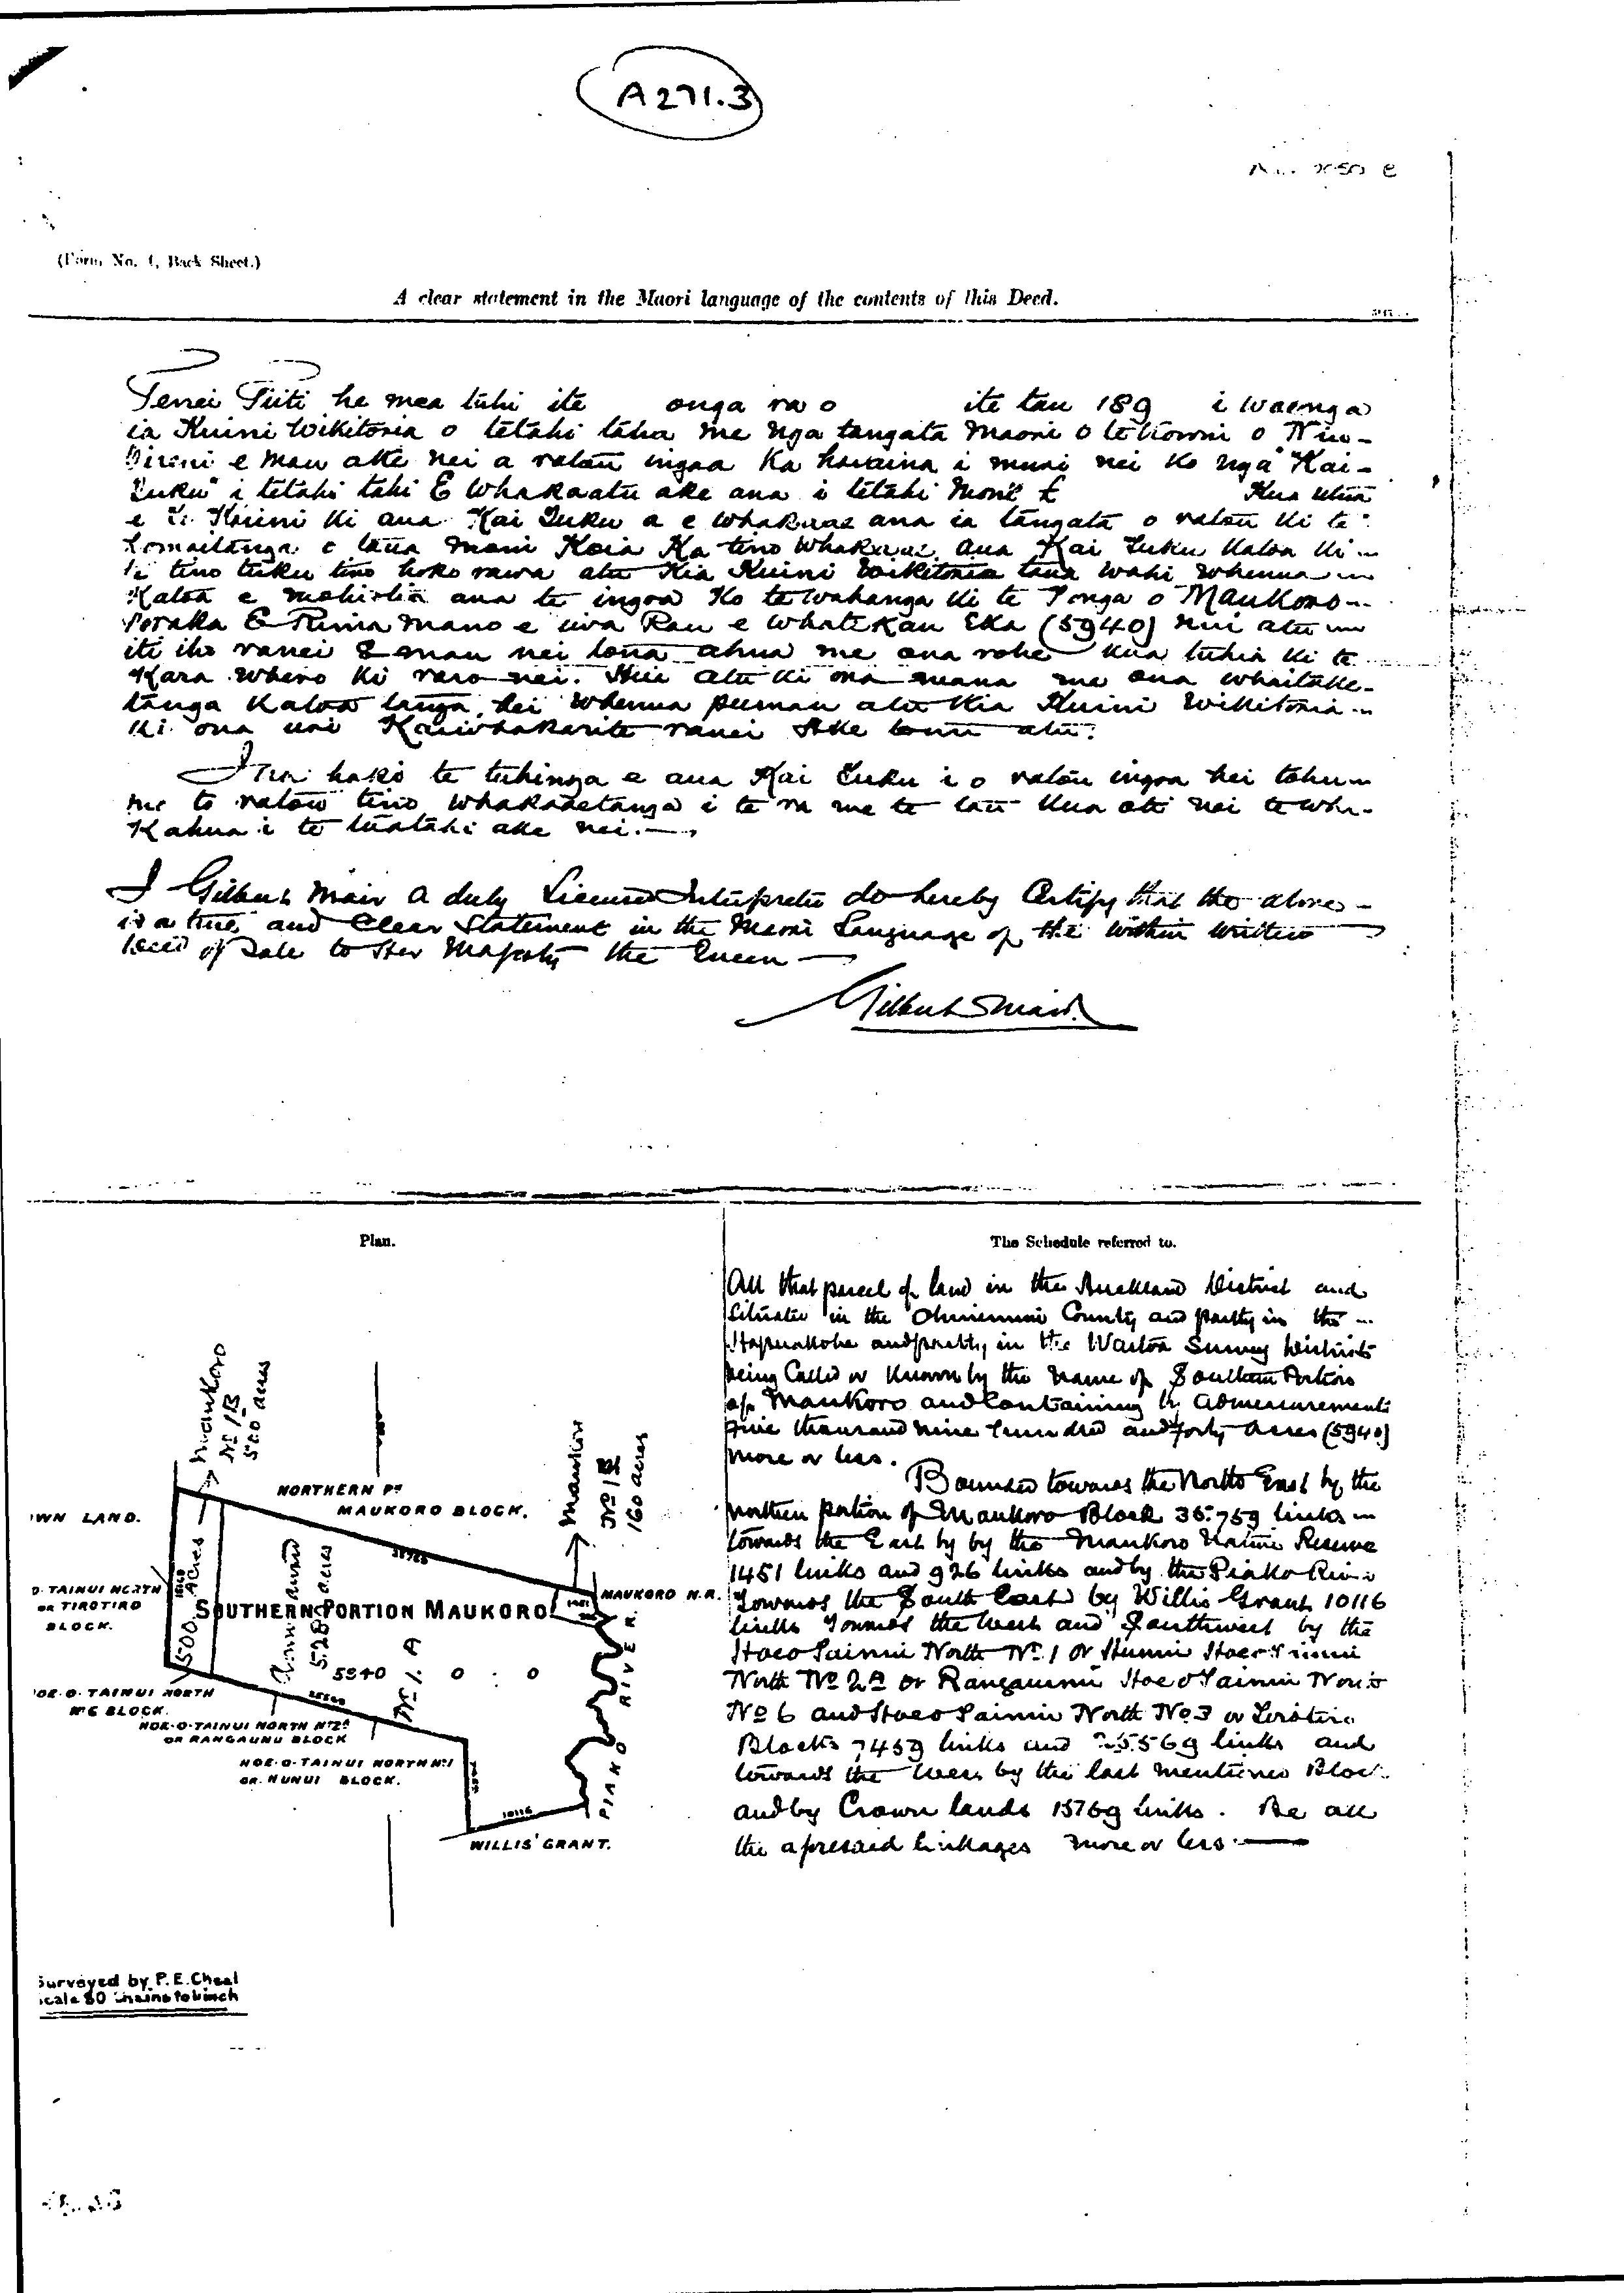 A271.3
(Form No. 1, Back Sheet.)
A clear statement in the Maori language of the contents of this Deed.
Tenei Tiiti he mea tuhi ite onga ra o ite tau 189 i waenga
ia Kuini Wikitoria o tetahi taha me nga tangata Maori o te Koroni o Niu-
Tireni e mau ake nei a ratou ingoa ka huaina i muri nei ko nga "Kai-
Tuku" i tetahi taki E whakaatu ake ana i tetahi moni £ Kua utua
e te Kuini ki aua Kai Tuku a e whakaae ana ia tangata o ratou ki te
tona moni Koia Ka tino whakaae aua Kai Tuku Katoa ki
te tino tuku tino hoko rawa atu Kia Kuini Wikitoria taua wahi whenua
Katoa e mohiotia ana te ingoa Ko te wahanga ki te Tonga o Maukoro
Poraka E Rima mano e iwa Rau e whatekau Eka (5940) nui atu
iti iho ranei E mau nei tona ahua me ona rohe kua tuhia ki te
Kara whero ki raro nei. Hui atu ki ona mana me ona whaitake-
tanga Katoa hei whenua pumau atu Kia Kuini Wikitoria
ki ona uri Kaiwhakarite ranei Ake tonu atu.
te tuhinga e aua Kai Tuku i o ratou ingoa hei tohu
mo to ratou tino whakaaetanga i te ra me te tau Kua oti nei te wha-
Kahua i te tuatahi ake nei.
I Gilbert Mair a duly Licensed Interpreter do hereby Certify that the above
is a true and Clear Statement in the Maori Language of the within written
Deed of Sale to Her Majesty the Queen
Gilbert Mair.
Plan.
Maukoro
No 1B
500 acres
Maukoro
No 1B
160 acres
NORTHERN Pn
MAUKORO BLOCK.
WN LAND.
O. TAINUI NORTH
OR TIROTIRO
BLOCK.
500 Acres
5280 acres
No 1. A
MAUKORO N.R.
SOUTHERN PORTION MAUKORO
5940 0 : 0
PIAKO RIVER
OE-O-TAINUI NORTH
No 6 BLOCK.
HOE-O-TAINUI NORTH No 2A
OR RANGAUNU BLOCK
HOE-O-TAINUI NORTH No 1
OR. HUNUI BLOCK.
10116
WILLIS' GRANT.
Surveyed by P. E. Cheal
Scale 80 Chains to 1 inch
The Schedule referred to.
All that parcel of land in the Auckland District and
Situated in the Ohinemuri County and partly in the
Hapuakohe and partly in the Waitoa Survey Districts
being Called or Known by the name of Southern Portion
of Maukoro and Containing by admeasurement
Five thousand nine hundred and forty acres (5940)
more or less.
Bounded towards the North East by the
northern portion of Maukoro Block 35.759 links
towards the East by by the Maukoro Native Reserve
1451 links and 926 links and by the Piako River
Towards the South East by Willis Grant 10116
links Towards the West and Southwest by the
Hoeo Tainui North No 1 or Hunui Hoeo Tainui
North No 2A or Rangaunu Hoe o Tainui North
No 6 and Hoeo Tainui North No 3 or Tirotiro
Blocks 7459 links and 25569 links and
towards the West by the last mentioned Block
and by Crown lands 15769 links. Be all
the aforesaid linkages more or less